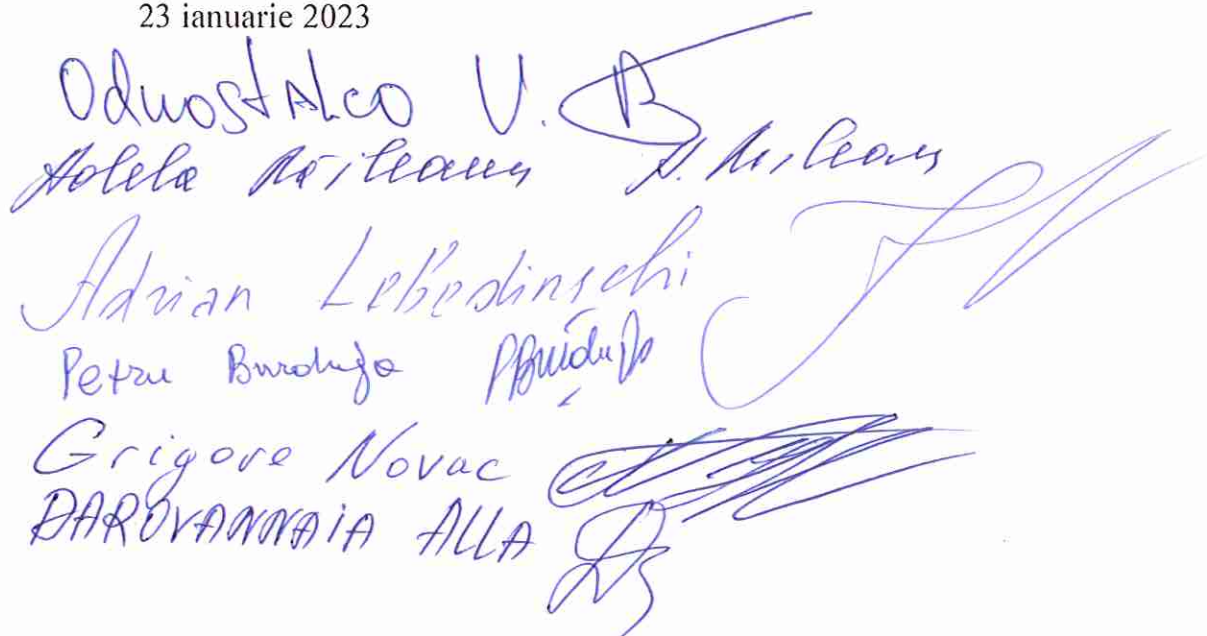 23 ianuarie 2023
Odnostalco V.
Adela Răileanu
Adrian Lebedinschi
Petru Burduja PBurduja
Grigore Novac
DAROVANNAIA ALLA